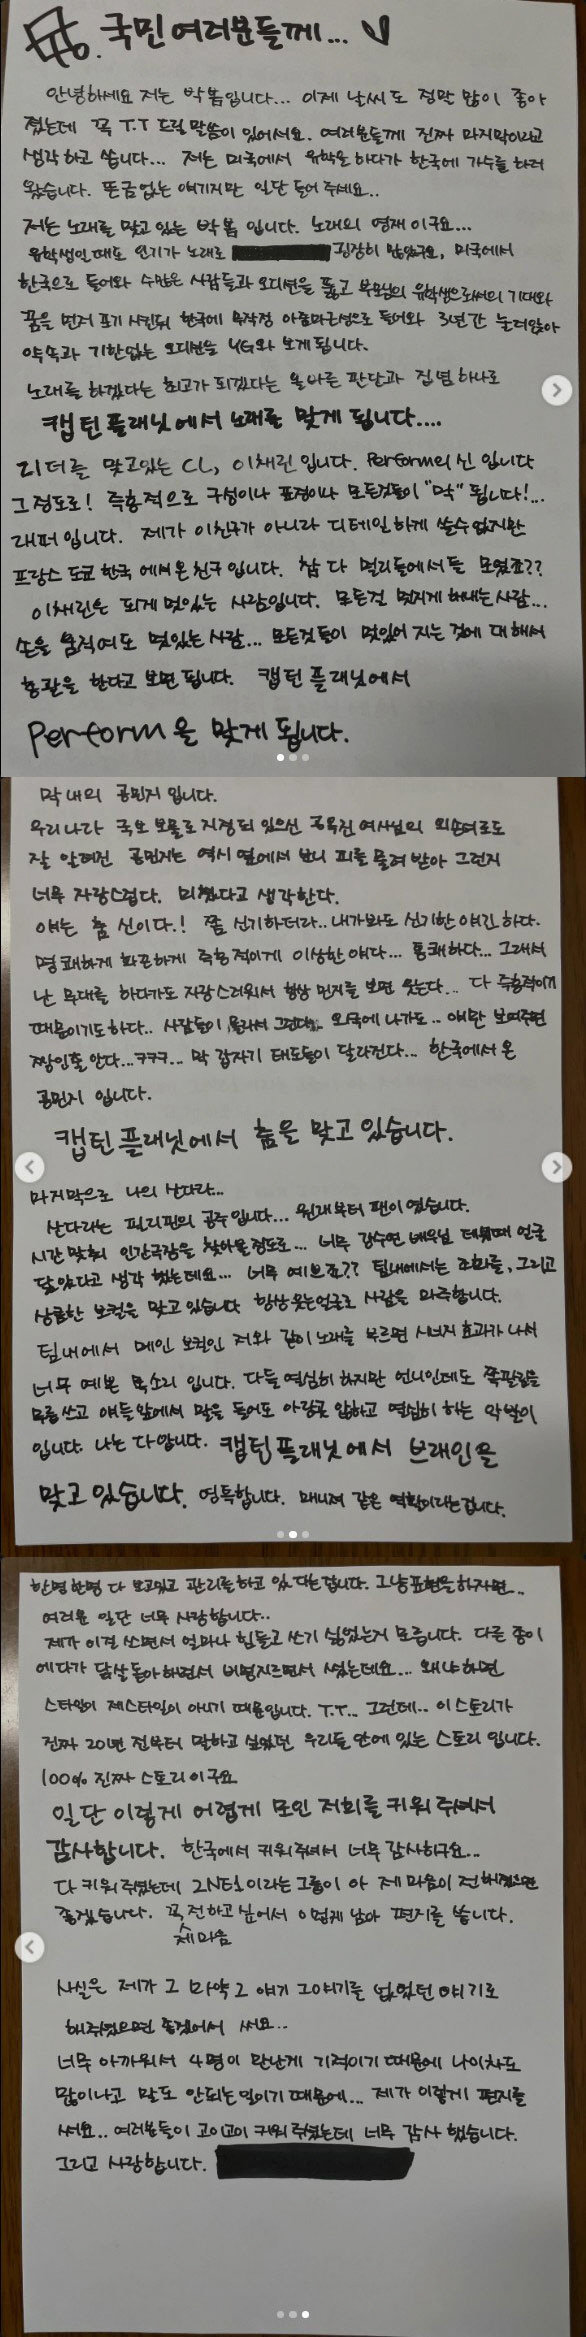 국민여러분들께...
안녕하세요 저는 박봄입니다... 이제 날씨도 정말 많이 좋아
졌는데 꼭 T.T 드릴 말씀이 있어서요. 여러분들께 진짜 마지막이라고
생각하고 씁니다... 저는 미국에서 유학을 하다가 한국에 가수를 하러
왔습니다. 뜬금없는 얘기지만 일단 들어주세요..
저는 노래를 맞고 있는 박봄 입니다. 노래의 영재이구요...
유학생인때도 인기가 노래로 굉장히 많았구요, 미국에서
한국으로 들어와 수많은 사람들과 오디션을 뚫고 부모님의 유학생으로써의 기대와
꿈을 먼저 포기 시킨뒤 한국에 무작정 아줌마근성으로 들어와 3년간 눌러앉아
약속과 기한없는 오디션을 YG와 보게 됩니다.
노래를 하겠다는 최고가 되겠다는 올바른 판단과 집념 하나로
캡틴플래닛에서 노래를 맞게 됩니다....
리더를 맞고있는 CL, 이채린입니다. Perform의 신 입니다
그정도로! 즉흥적으로 구성이나 표정이나 모든것들이 "막" 됩니다!...
래퍼입니다. 제가 이친구가 아니라 디테일하게 쓸수없지만
프랑스 도쿄 한국 에서 온 친구 입니다. 참 다 멀리들에서들 모였죠??
이채린은 되게 멋있는 사람입니다. 모든걸 멋지게 해내는 사람...
손을 움직여도 멋있는 사람... 모든것들이 멋있어 지는 것에 대해서
총괄을 한다고 보면 됩니다. 캡틴플래닛에서
Perform을 맞게 됩니다.
막내의 공민지 입니다.
우리나라 국보 보물로 지정되 있으신 공옥진 여사님의 외손녀로도
잘 알려진 공민지는 역시 옆에서 보니 피를 물려 받아 그런지
너무 자랑스럽다. 미쳤다고 생각한다.
얘는 춤 신이다.! 쫌 신기하더라.. 내가봐도 신기한 얘긴 하다.
명쾌하게 화끈하게 즉흥적이게 이상한 얘다... 통쾌하다... 그래서
난 무대를 하다가도 자랑스러워서 항상 민지를 보면 웃는다... 다 즉흥적이기
때문이기도하다.. 사람들이 몰라서 그런다.. 외국에 나가도.. 얘만 보여주면
짱인줄 안다...ㅋㅋㅋ... 막 갑자기 태도들이 달라진다... 한국에서 온
공민지 입니다.
캡틴플래닛에서 춤을 맞고 있습니다.
마지막으로 나의 산다라...
산다라는 필리핀의 공주입니다... 원래부터 팬이였습니다.
시간 맞춰 인간극장을 찾아볼정도로... 너무 강수연 배우님 데뷔때 얼굴
닮았다고 생각 했는데요... 너무 예쁘죠?? 팀내에서는 조화를, 그리고
상큼한 보컬을 맞고 있습니다 항상웃는얼굴로 사람을 마주합니다.
팀내에서 메인 보컬인 저와 같이 노래를 부르면 시너지 효과가 나서
너무 예쁜 목소리 입니다. 다들 열심히 하지만 언니인데도 쪽팔림을
무릎쓰고 얘들 앞에서 말을 들어도 아랑곳 않하고 열심히 하는 악발이
입니다. 나는 다 압니다. 캡틴플래닛에서 브래인을
맞고 있습니다. 영특합니다. 매니져 같은 역할이라는겁니다.
한명한명 다 보고있고 관리를하고 있다는 겁니다. 그냥표현을하자면...
여러분 일단 너무 사랑합니다..
제가 이걸 쓰면서 얼마나 힘들고 쓰기 싫었는지 모릅니다. 다른 종이
에다가 닭살돋아 하면서 비명지르면서 썼는데요... 왜냐하면
스타일이 제스타일이 아니기 때문입니다. T.T... 그런데.. 이 스토리가
진짜 20년 전부터 말하고 싶었던 우리들 안에 있는 스토리 입니다.
100% 진짜 스토리이구요
일단 이렇게 어렵게 모인 저희를 키워 주셔서
감사합니다. 한국에서 키워주셔서 너무 감사하구요...
다 키워주셨는데 2NE1이라는 그룹이 아 제 마음이 전해졌으면
좋겠습니다. 꼭 전하고 싶어서 이렇게 남아 편지를 씁니다.
제마음
사실은 제가 그 마약 그 얘기 그이야기를 없었던 얘기로
해주셨으면 좋겠어서 써요...
너무 아까워서 4명이 만난게 기적이기 때문에 나이차도
많이나고 말도 안되는 일이기 때문에... 제가 이렇게 편지를
써요.. 여러분들이 고이고이 키워 주셨는데 너무 감사 했습니다.
그리고 사랑합니다.